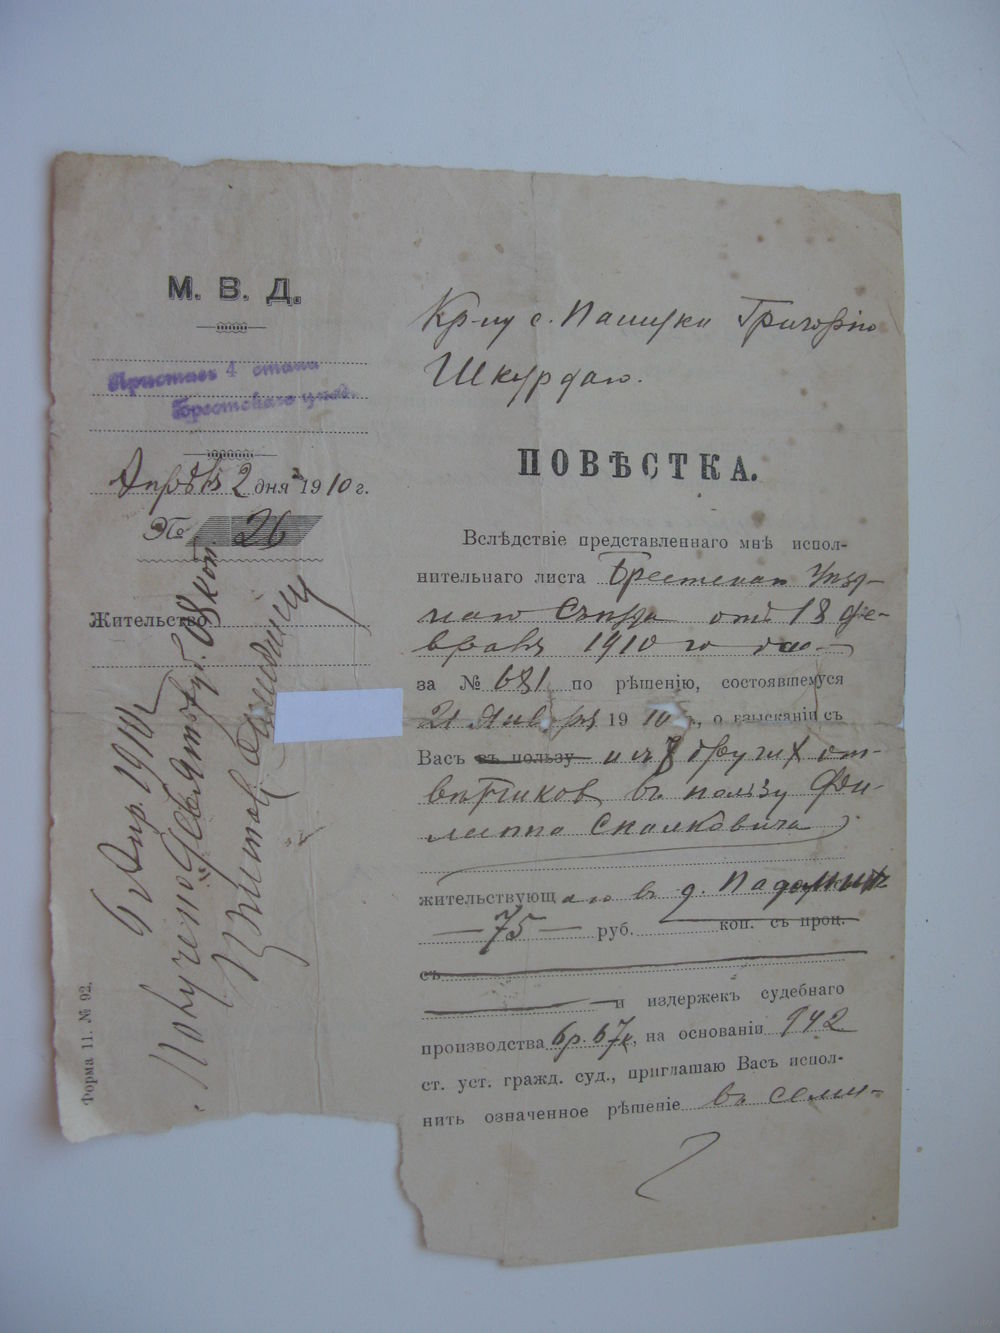 М. В. Д.
Приставъ 4 стана
Брестскаго уѣзд.
Апрѣля 2 дня 1910 г.
№ 26
Жительство
6 Апр. 1910
Получено Девятьруб. 08 коп
Форма 11. № 92.
Кр-ну с. Пашуки Григорію
Шкурдаю.
ПОВѢСТКА.
Вслѣдствіе представленнаго мнѣ испол-
нительнаго листа Брестскаго Уѣзд-
наго Съѣзда отъ 18 фе-
враля 1910 года
за № 681 по рѣшенію, состоявшемуся
21 Января 1910 г., о взысканіи съ
Васъ въ пользу и съ 8 другихъ от-
вѣтчиковъ въ пользу Фи-
липпа
жительствующаго въ д.
75 руб. коп. съ проц.
съ
и издержекъ судебнаго
производства 6 р. 67 к, на основаніи 942
ст. уст. гражд. суд., приглашаю Васъ испол-
нить означенное рѣшеніе въ семи-